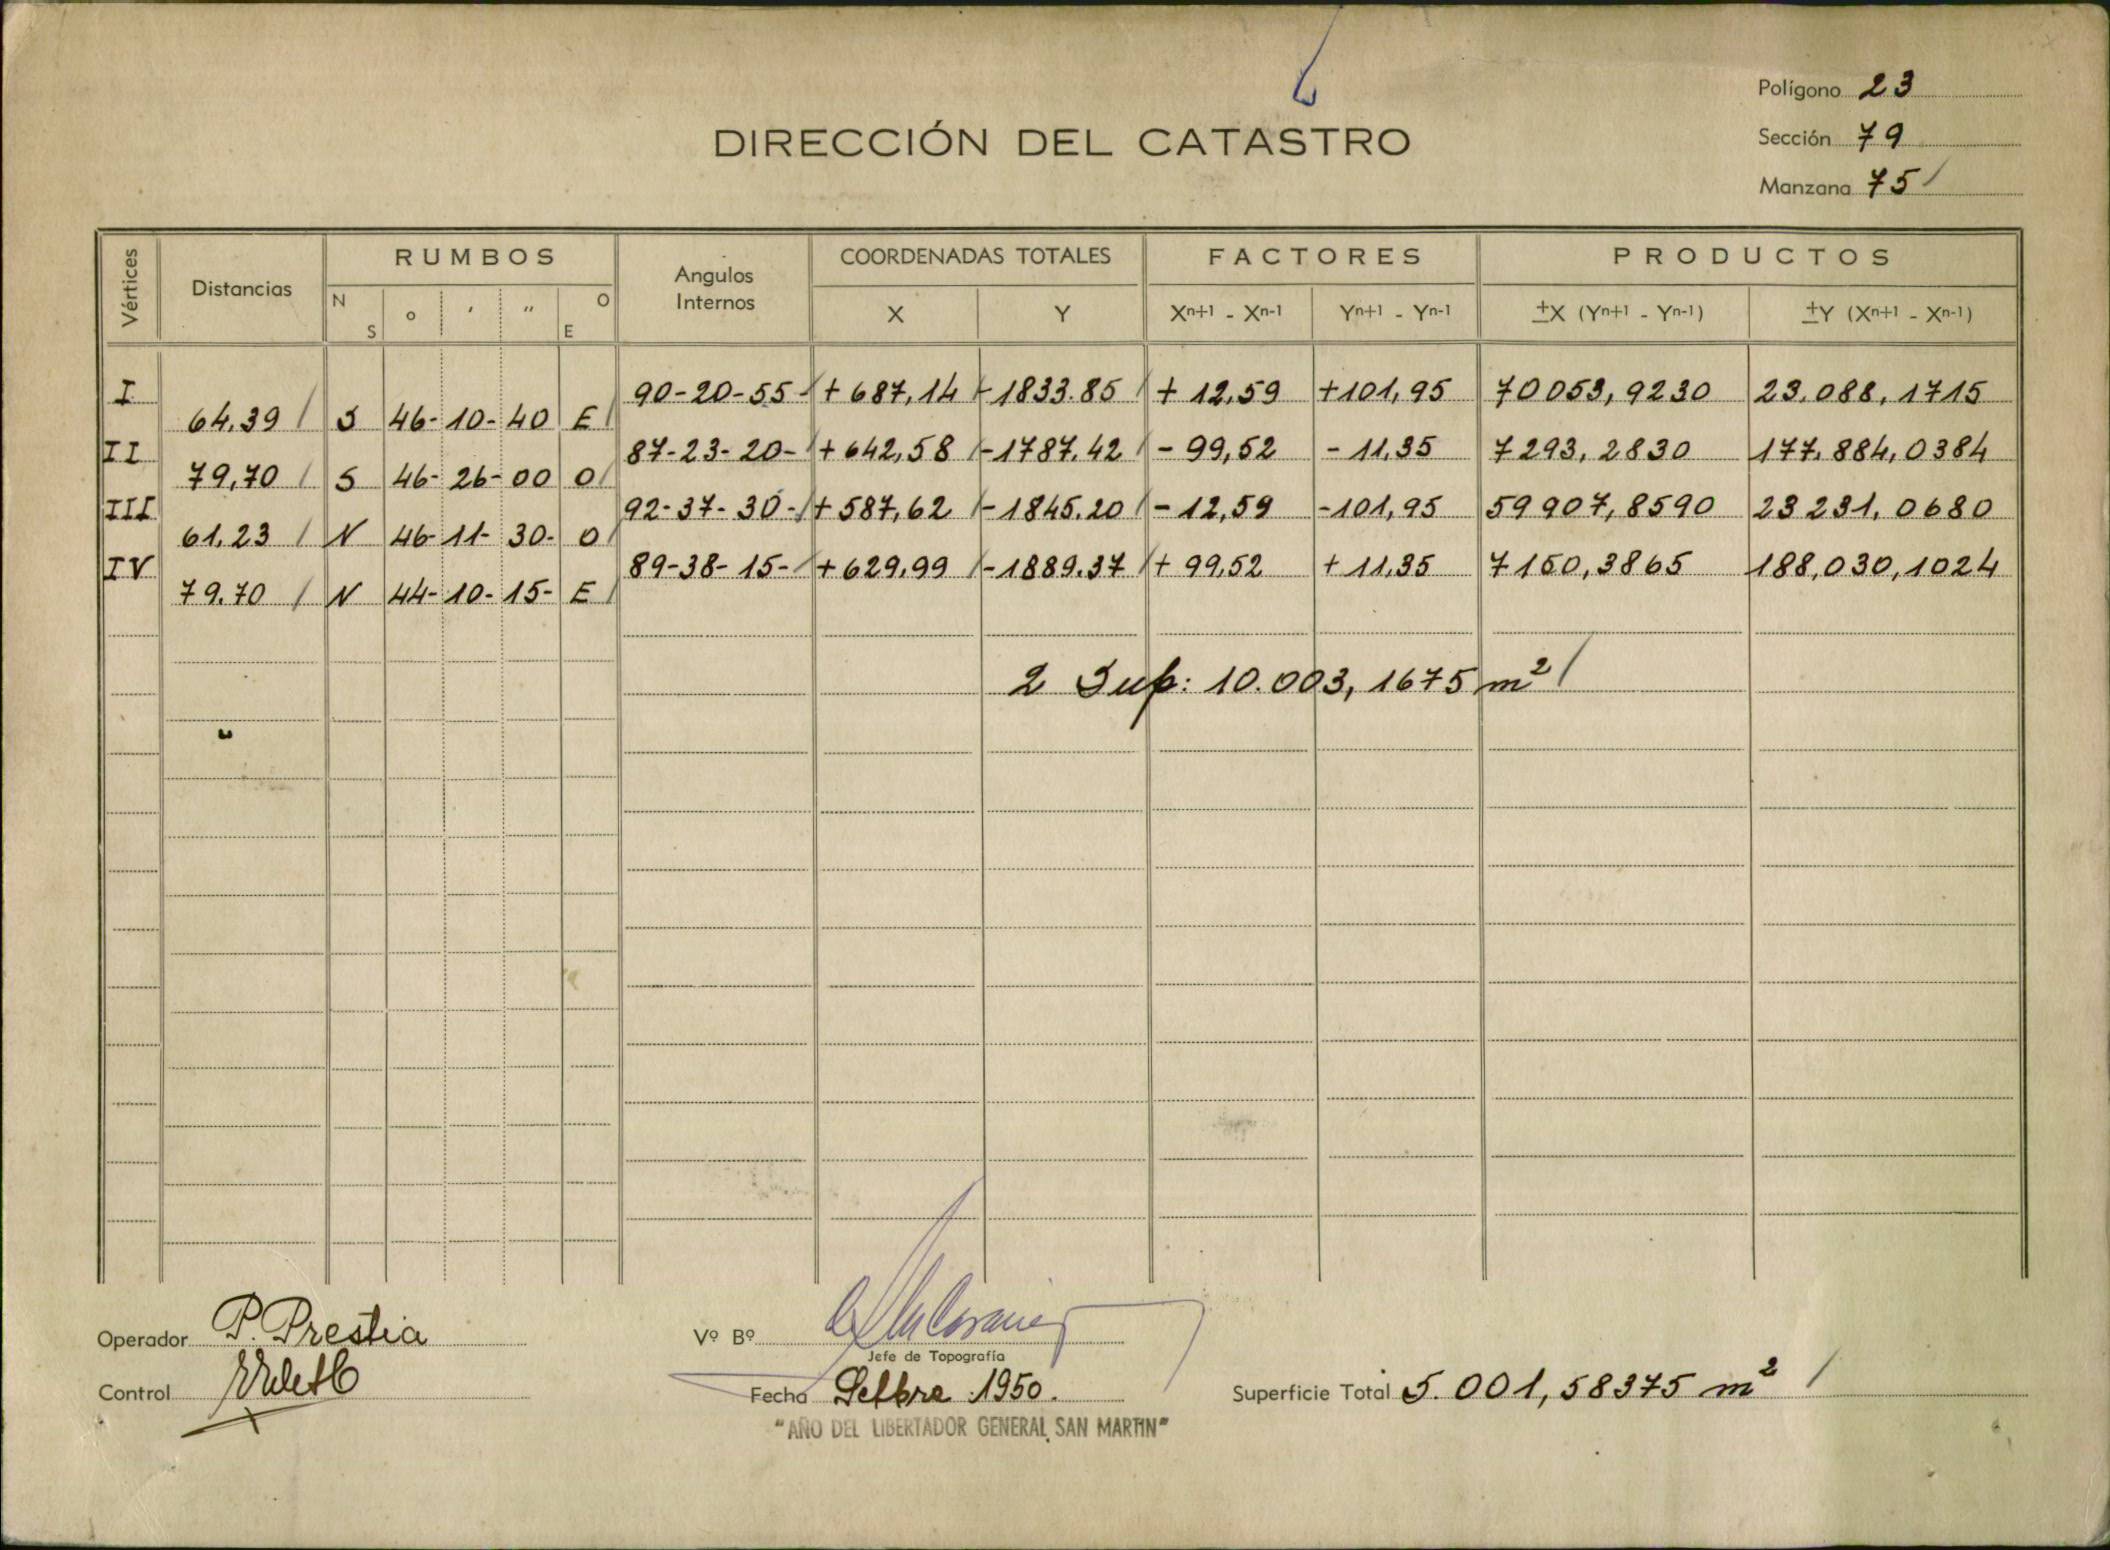 Polígono 23
DIRECCIÓN DEL CATASTRO
Sección 79
Manzana 75
Vértices Distancias RUMBOS Angulos Internos COORDENADAS TOTALES FACTORES PRODUCTOS
N S o ' '' O E X Y Xn+1 - Xn-1 Yn+1 - Yn-1 ±X (Yn+1 - Yn-1) ±Y (Xn+1 - Xn-1)
I 90-20-55- + 687,14 - 1833.85 + 12,59 +101,95 70053,9230 23.088,1715
64,39 S 46- 10- 40 E
II 87-23-20- + 642,58 -1787.42 - 99,52 - 11,35 7293,2830 177.884,0384
79,70 S 46- 26- 00 O
III 92-37-30- + 587,62 -1845.20 - 12,59 -101,95 59907,8590 23231,0680
61,23 N 46- 11- 30- O
IV 89-38-15- + 629,99 -1889.37 + 99,52 + 11,35 7150,3865 188,030,1024
79.70 N 44- 10- 15- E
2 Sup: 10.003,1675 m²
Operador P. Prestia
Vº Bº
Jefe de Topografía
Control
Fecha Setbre 1950.
Superficie Total 5.001,58375 m²
"AÑO DEL LIBERTADOR GENERAL SAN MARTIN"